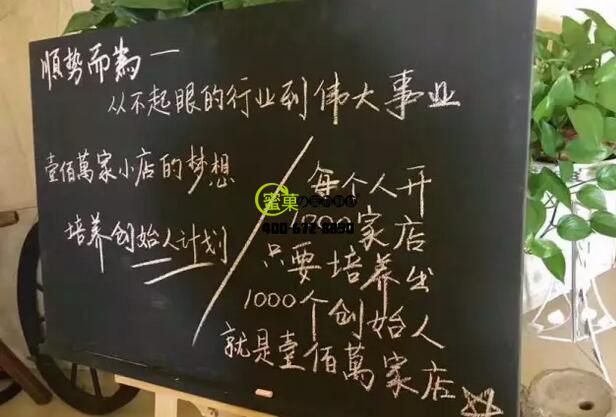 順势而為一
从不起眼的行业到伟大事业
壹佰萬家小店的梦想
培养创始人计划
每个人开
1000家店
只要培养出
1000个创始人
就是壹佰萬家店
蜜菓
400-672-8090